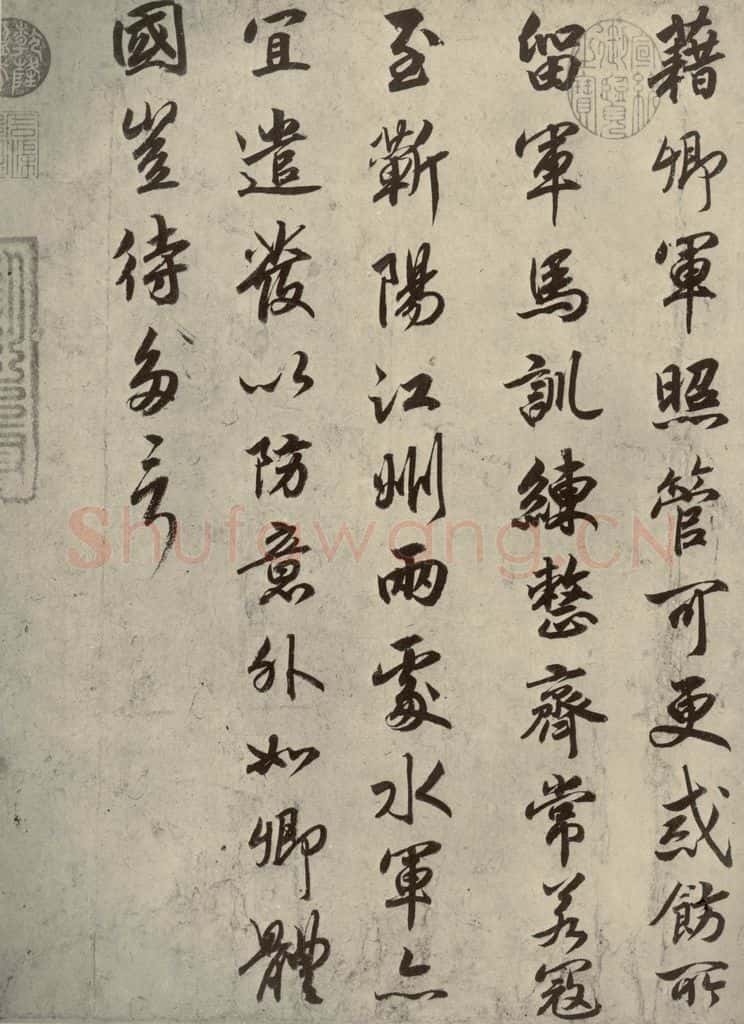 藉卿軍照管可更戒飭所
留軍馬訓練整齊常若寇
至蘄陽江州兩處水軍亦
宜遣發以防意外如卿體
國豈待多言
Shufawang.CN